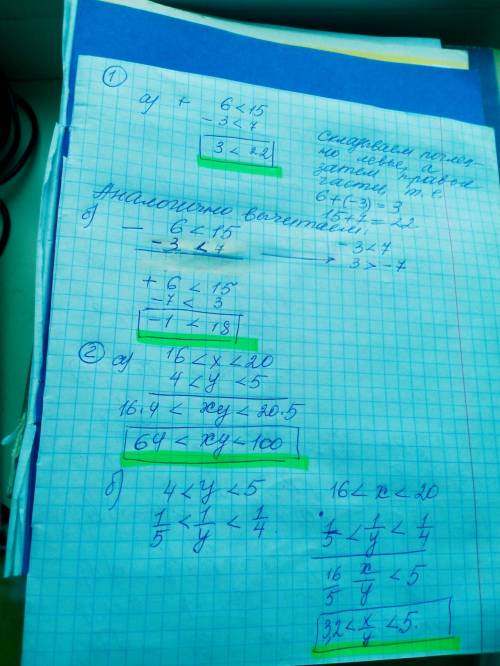 1
а) + 6 < 15
- 3 < 7
3 < 22
Складываем почлен-
но левые, а
затем правые
части, т. е
6+(-3) = 3
15+7 = 22
Аналогично вычитаем:
б) - 6 < 15
- 3 < 7
- 3 < 7
3 > - 7
+ 6 < 15
- 7 < 3
- 1 < 18
2 а) 16 < x < 20
4 < y < 5
16·4 < xy < 20·5
64 < xy < 100
б) 4 < y < 5
1/5 < 1/y < 1/4
16 < x < 20
1/5 < 1/y < 1/4
16/5 x/y < 5
3,2 < x/y < 5.